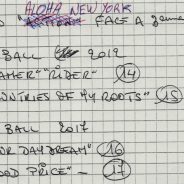 ALOHA NEW YORK
FACE A
BALL 2019
"RIDER" 14
OUNTRIES OF MY ROOTS" 15
BALL 2017
OR DAYDREAM" 16
OOD PRICE" - 17